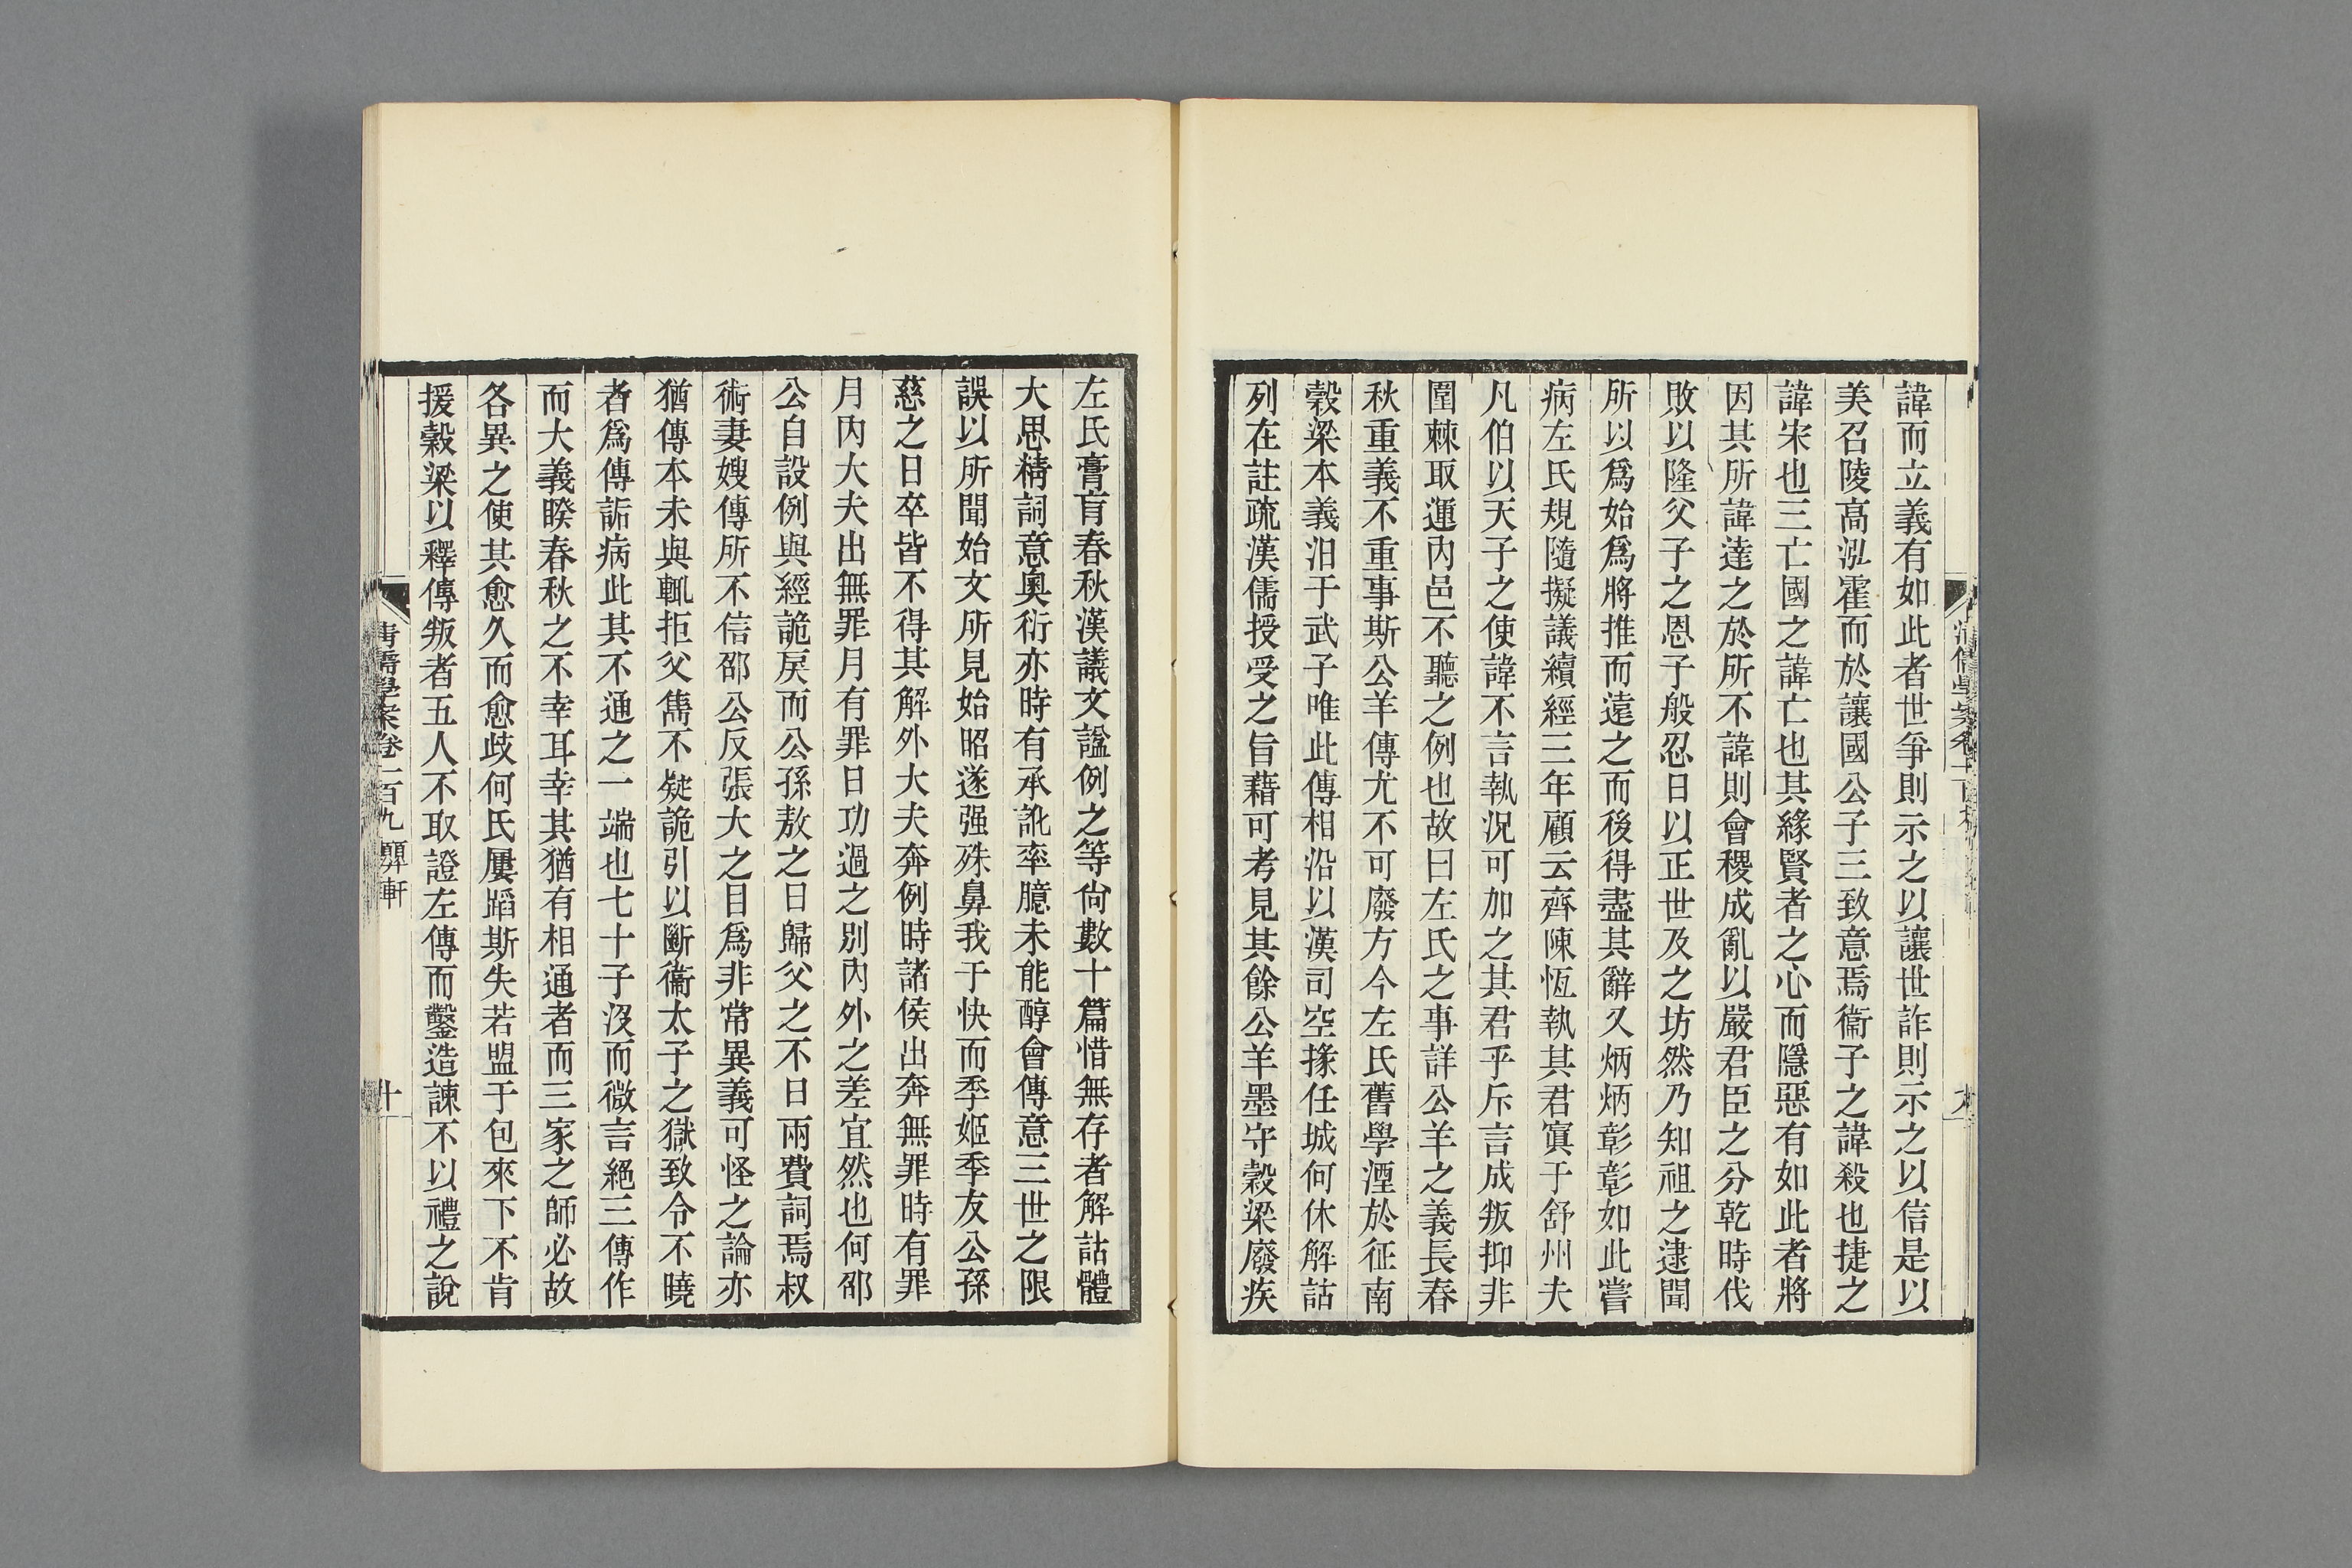 諱而立義有如此者世爭則示之以讓世詐則示之以信是以
美召陵高泓霍而於讓國公子三致意焉衞子之諱殺也捷之
諱宋也三亡國之諱亡也其緣賢者之心而隱惡有如此者將
因其所諱達之於所不諱則會稷成亂以嚴君臣之分乾時伐
敗以隆父子之恩子般忍日以正世及之坊然乃知祖之逮聞
所以爲始爲將推而遠之而後得盡其辭又炳炳彰彰如此嘗
病左氏規隨擬議續經三年顧云齊陳恆執其君寘于舒州夫
凡伯以天子之使諱不言執況可加之其君乎斥言成叛抑非
圍棘取運內邑不聽之例也故曰左氏之事詳公羊之義長春
秋重義不重事斯公羊傳尤不可廢方今左氏舊學湮於征南
穀梁本義汨于武子唯此傳相沿以漢司空掾任城何休解詁
列在註疏漢儒授受之旨藉可考見其餘公羊墨守穀梁廢疾
左氏膏肓春秋漢議文諡例之等尙數十篇惜無存者解詁體
大思精詞意奧衍亦時有承訛率臆未能醇會傳意三世之限
誤以所聞始文所見始昭遂强殊鼻我于快而季姬季友公孫
慈之日卒皆不得其解外大夫奔例時諸侯出奔無罪時有罪
月內大夫出無罪月有罪日功過之別內外之差宜然也何邵
公自設例與經詭戾而公孫敖之日歸父之不日兩費詞焉叔
術妻嫂傳所不信邵公反張大之目爲非常異義可怪之論亦
猶傳本未與輒拒父雋不疑詭引以斷衞太子之獄致令不曉
者爲傳詬病此其不通之一端也七十子沒而微言絕三傳作
而大義睽春秋之不幸耳幸其猶有相通者而三家之師必故
各異之使其愈久而愈歧何氏屢蹈斯失若盟于包來下不肯
援穀梁以釋傳叛者五人不取證左傳而鑿造諫不以禮之說
清儒學案卷一百九　顨軒
十